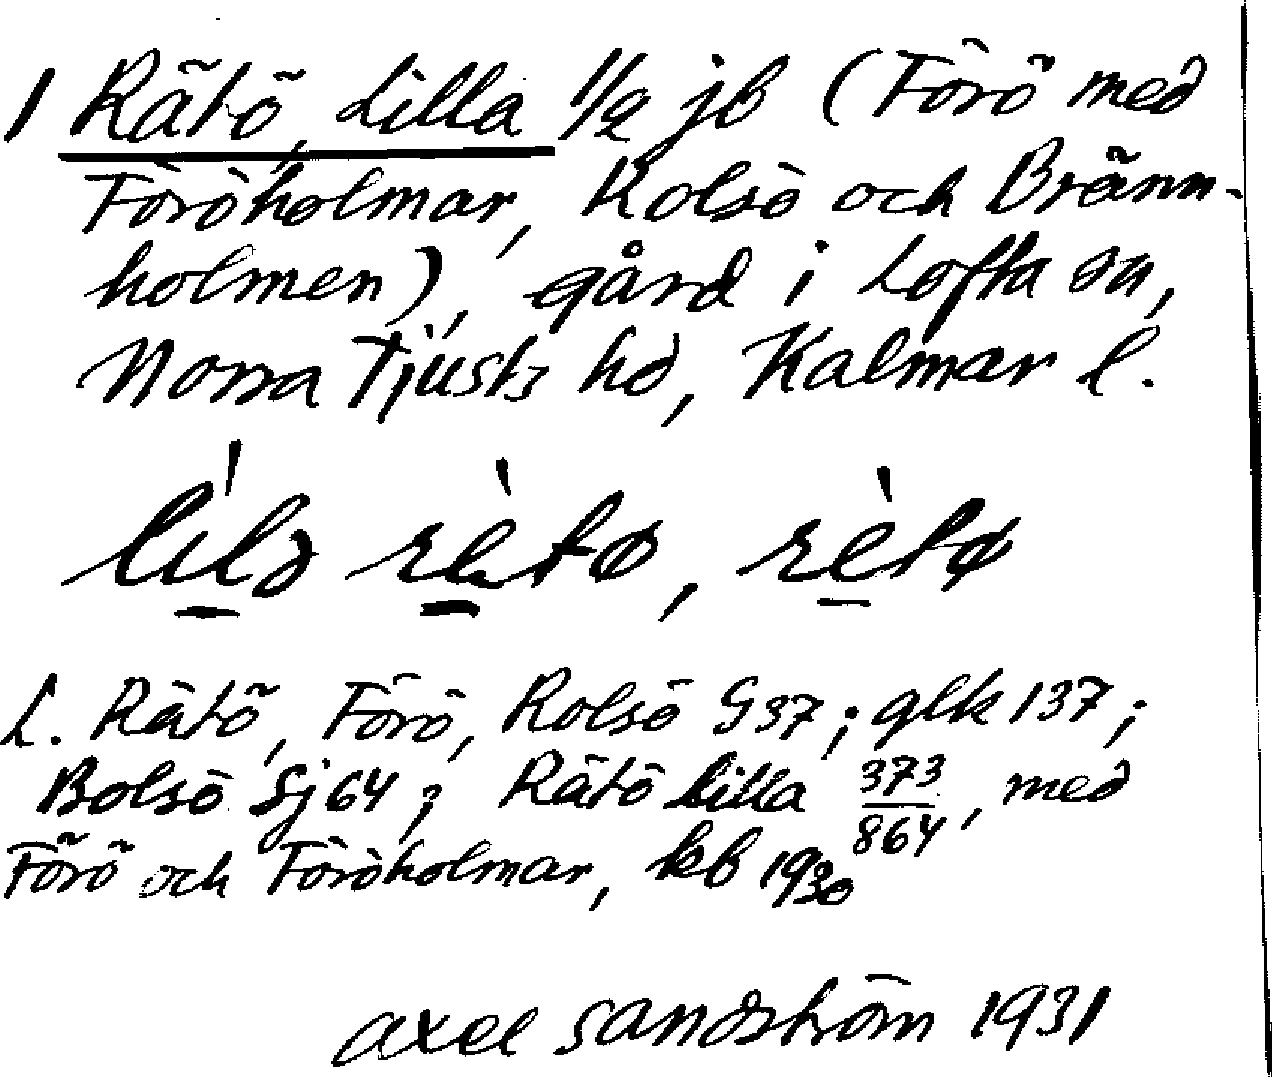 1 Rätö, Lilla 1/2 jb (Förö med
Föröholmar, Kolsö och Bränn-
holmen), gård i Lofta sn,
Norra Tjusts hd, Kalmar l.
lìlɔ rètø, rètø
L. Rätö, Förö, Rolsö G37; glk 137;
Bolsö Sj64; Rätö Lilla 373/864, med
Förö och Föröholmar, kb 1930
Axel Sandström 1931